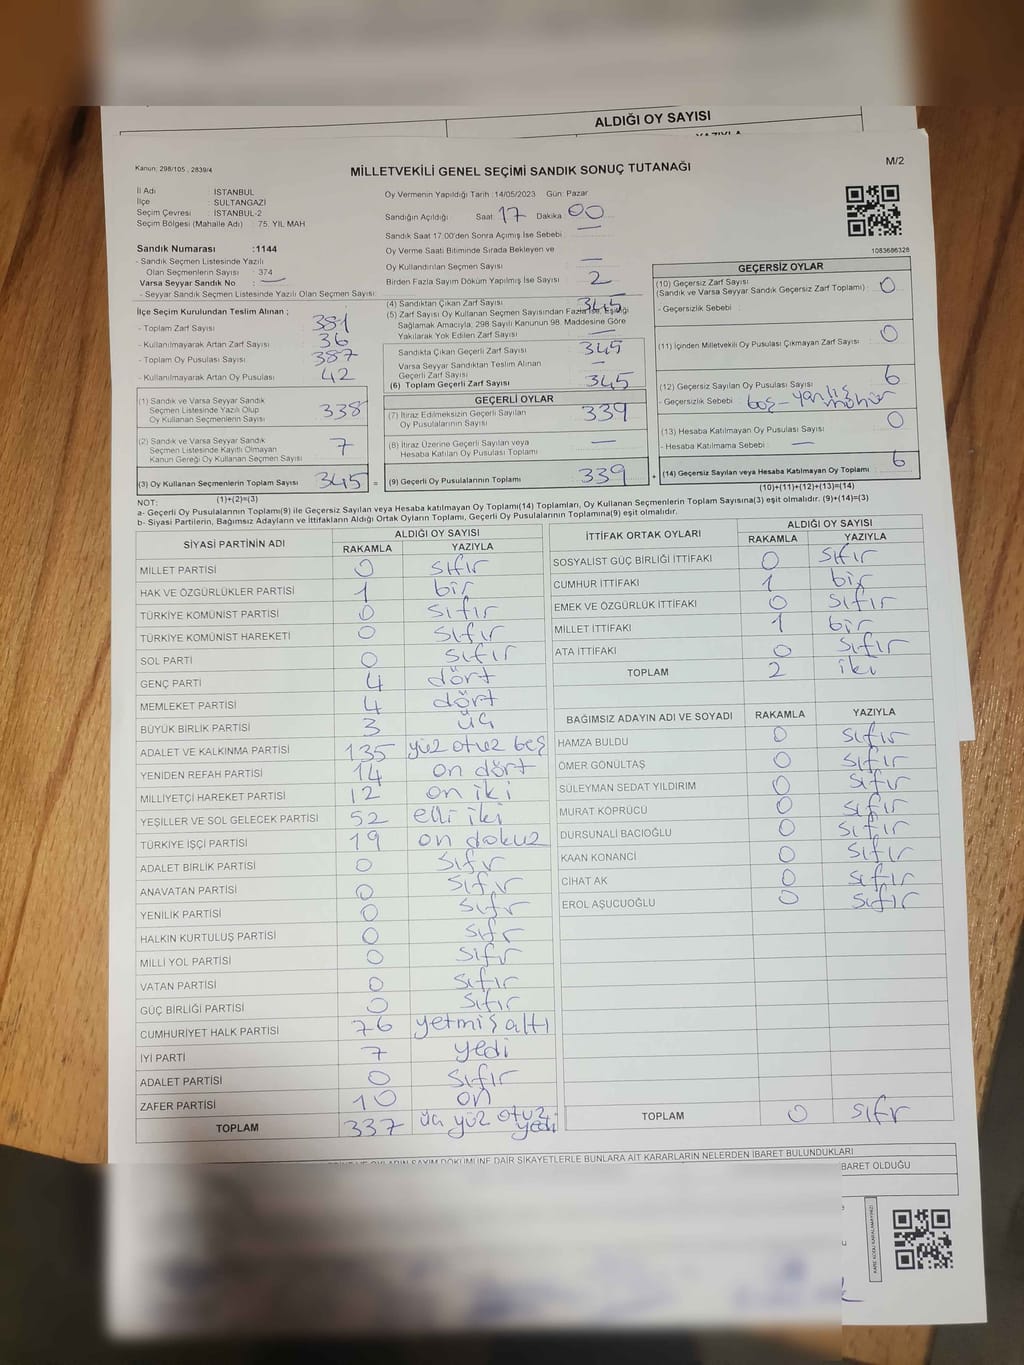 ALDIĞI OY SAYISI
Kanun: 298/105 , 2839/4
MİLLETVEKİLİ GENEL SEÇİMİ SANDIK SONUÇ TUTANAĞI
M/2
İl Adı : İSTANBUL
İlçe : SULTANGAZİ
Seçim Çevresi : İSTANBUL-2
Seçim Bölgesi (Mahalle Adı) : 75. YIL MAH
Sandık Numarası :1144
- Sandık Seçmen Listesinde Yazılı
Olan Seçmenlerin Sayısı : 374
Varsa Seyyar Sandık No : —
- Seyyar Sandık Seçmen Listesinde Yazılı Olan Seçmen Sayısı:
Oy Vermenin Yapıldığı Tarih :14/05/2023 Gün: Pazar
Sandığın Açıldığı Saat 17 Dakika 00
Sandık Saat 17:00'den Sonra Açımış İse Sebebi —
Oy Verme Saati Bitiminde Sırada Bekleyen ve
Oy Kullandırılan Seçmen Sayısı —
Birden Fazla Sayım Döküm Yapılmış İse Sayısı 2
1083686328
İlçe Seçim Kurulundan Teslim Alınan ;
- Toplam Zarf Sayısı 381
- Kullanılmayarak Artan Zarf Sayısı 36
- Toplam Oy Pusulası Sayısı 387
- Kullanılmayarak Artan Oy Pusulası 42
(1) Sandık ve Varsa Seyyar Sandık
Seçmen Listesinde Yazılı Olup
Oy Kullanan Seçmenlerin Sayısı 338
(2) Sandık ve Varsa Seyyar Sandık
Seçmen Listesinde Kayıtlı Olmayan
Kanun Gereği Oy Kullanan Seçmen Sayısı 7
(3) Oy Kullanan Seçmenlerin Toplam Sayısı 345 =
(4) Sandıktan Çıkan Zarf Sayısı 345
(5) Zarf Sayısı Oy Kullanan Seçmen Sayısından Fazla İse, Eşitliği
Sağlamak Amacıyla, 298 Sayılı Kanunun 98. Maddesine Göre
Yakılarak Yok Edilen Zarf Sayısı —
Sandıkta Çıkan Geçerli Zarf Sayısı 345
Varsa Seyyar Sandıktan Teslim Alınan
Geçerli Zarf Sayısı —
(6) Toplam Geçerli Zarf Sayısı 345
GEÇERLİ OYLAR
(7) İtiraz Edilmeksizin Geçerli Sayılan
Oy Pusulalarının Sayısı 339
(8) İtiraz Üzerine Geçerli Sayılan veya
Hesaba Katılan Oy Pusulası Toplamı —
(9) Geçerli Oy Pusulalarının Toplamı 339 +
GEÇERSİZ OYLAR
(10) Geçersiz Zarf Sayısı
(Sandık ve Varsa Seyyar Sandık Geçersiz Zarf Toplamı) : 0
- Geçersizlik Sebebi :
(11) İçinden Milletvekili Oy Pusulası Çıkmayan Zarf Sayısı 0
(12) Geçersiz Sayılan Oy Pusulası Sayısı 6
- Geçersizlik Sebebi : boş - yanlış mühür
(13) Hesaba Katılmayan Oy Pusulası Sayısı 0
- Hesaba Katılmama Sebebi : —
(14) Geçersiz Sayılan veya Hesaba Katılmayan Oy Toplamı 6
NOT: (1)+(2)=(3)
(10)+(11)+(12)+(13)=(14)
a- Geçerli Oy Pusulalarının Toplamı(9) ile Geçersiz Sayılan veya Hesaba katılmayan Oy Toplamı(14) Toplamları, Oy Kullanan Seçmenlerin Toplam Sayısına(3) eşit olmalıdır. (9)+(14)=(3)
b- Siyasi Partilerin, Bağımsız Adayların ve İttifakların Aldığı Ortak Oyların Toplamı, Geçerli Oy Pusulalarının Toplamına(9) eşit olmalıdır.
SİYASİ PARTİNİN ADI ALDIĞI OY SAYISI
RAKAMLA YAZIYLA
MİLLET PARTİSİ 0 sıfır
HAK VE ÖZGÜRLÜKLER PARTİSİ 1 bir
TÜRKİYE KOMÜNİST PARTİSİ 0 sıfır
TÜRKİYE KOMÜNİST HAREKETİ 0 sıfır
SOL PARTİ 0 sıfır
GENÇ PARTİ 4 dört
MEMLEKET PARTİSİ 4 dört
BÜYÜK BİRLİK PARTİSİ 3 üç
ADALET VE KALKINMA PARTİSİ 135 yüz otuz beş
YENİDEN REFAH PARTİSİ 14 on dört
MİLLİYETÇİ HAREKET PARTİSİ 12 on iki
YEŞİLLER VE SOL GELECEK PARTİSİ 52 elli iki
TÜRKİYE İŞÇİ PARTİSİ 19 on dokuz
ADALET BİRLİK PARTİSİ 0 sıfır
ANAVATAN PARTİSİ 0 sıfır
YENİLİK PARTİSİ 0 sıfır
HALKIN KURTULUŞ PARTİSİ 0 sıfır
MİLLİ YOL PARTİSİ 0 sıfır
VATAN PARTİSİ 0 sıfır
GÜÇ BİRLİĞİ PARTİSİ 0 sıfır
CUMHURİYET HALK PARTİSİ 76 yetmiş altı
İYİ PARTİ 7 yedi
ADALET PARTİSİ 0 sıfır
ZAFER PARTİSİ 10 on
TOPLAM 337 üç yüz otuz yedi
İTTİFAK ORTAK OYLARI ALDIĞI OY SAYISI
RAKAMLA YAZIYLA
SOSYALİST GÜÇ BİRLİĞİ İTTİFAKI 0 sıfır
CUMHUR İTTİFAKI 1 bir
EMEK VE ÖZGÜRLÜK İTTİFAKI 0 sıfır
MİLLET İTTİFAKI 1 bir
ATA İTTİFAKI 0 sıfır
TOPLAM 2 iki
BAĞIMSIZ ADAYIN ADI VE SOYADI RAKAMLA YAZIYLA
HAMZA BULDU 0 sıfır
ÖMER GÖNÜLTAŞ 0 sıfır
SÜLEYMAN SEDAT YILDIRIM 0 sıfır
MURAT KÖPRÜCÜ 0 sıfır
DURSUNALİ BACIOĞLU 0 sıfır
KAAN KONANCİ 0 sıfır
CİHAT AK 0 sıfır
EROL AŞUCUOĞLU 0 sıfır
TOPLAM 0 sıfır
OYLARIN SAYIM DÖKÜMÜNE DAİR ŞİKAYETLERLE BUNLARA AİT KARARLARIN NELERDEN İBARET BULUNDUKLARI
BARET OLDUĞU